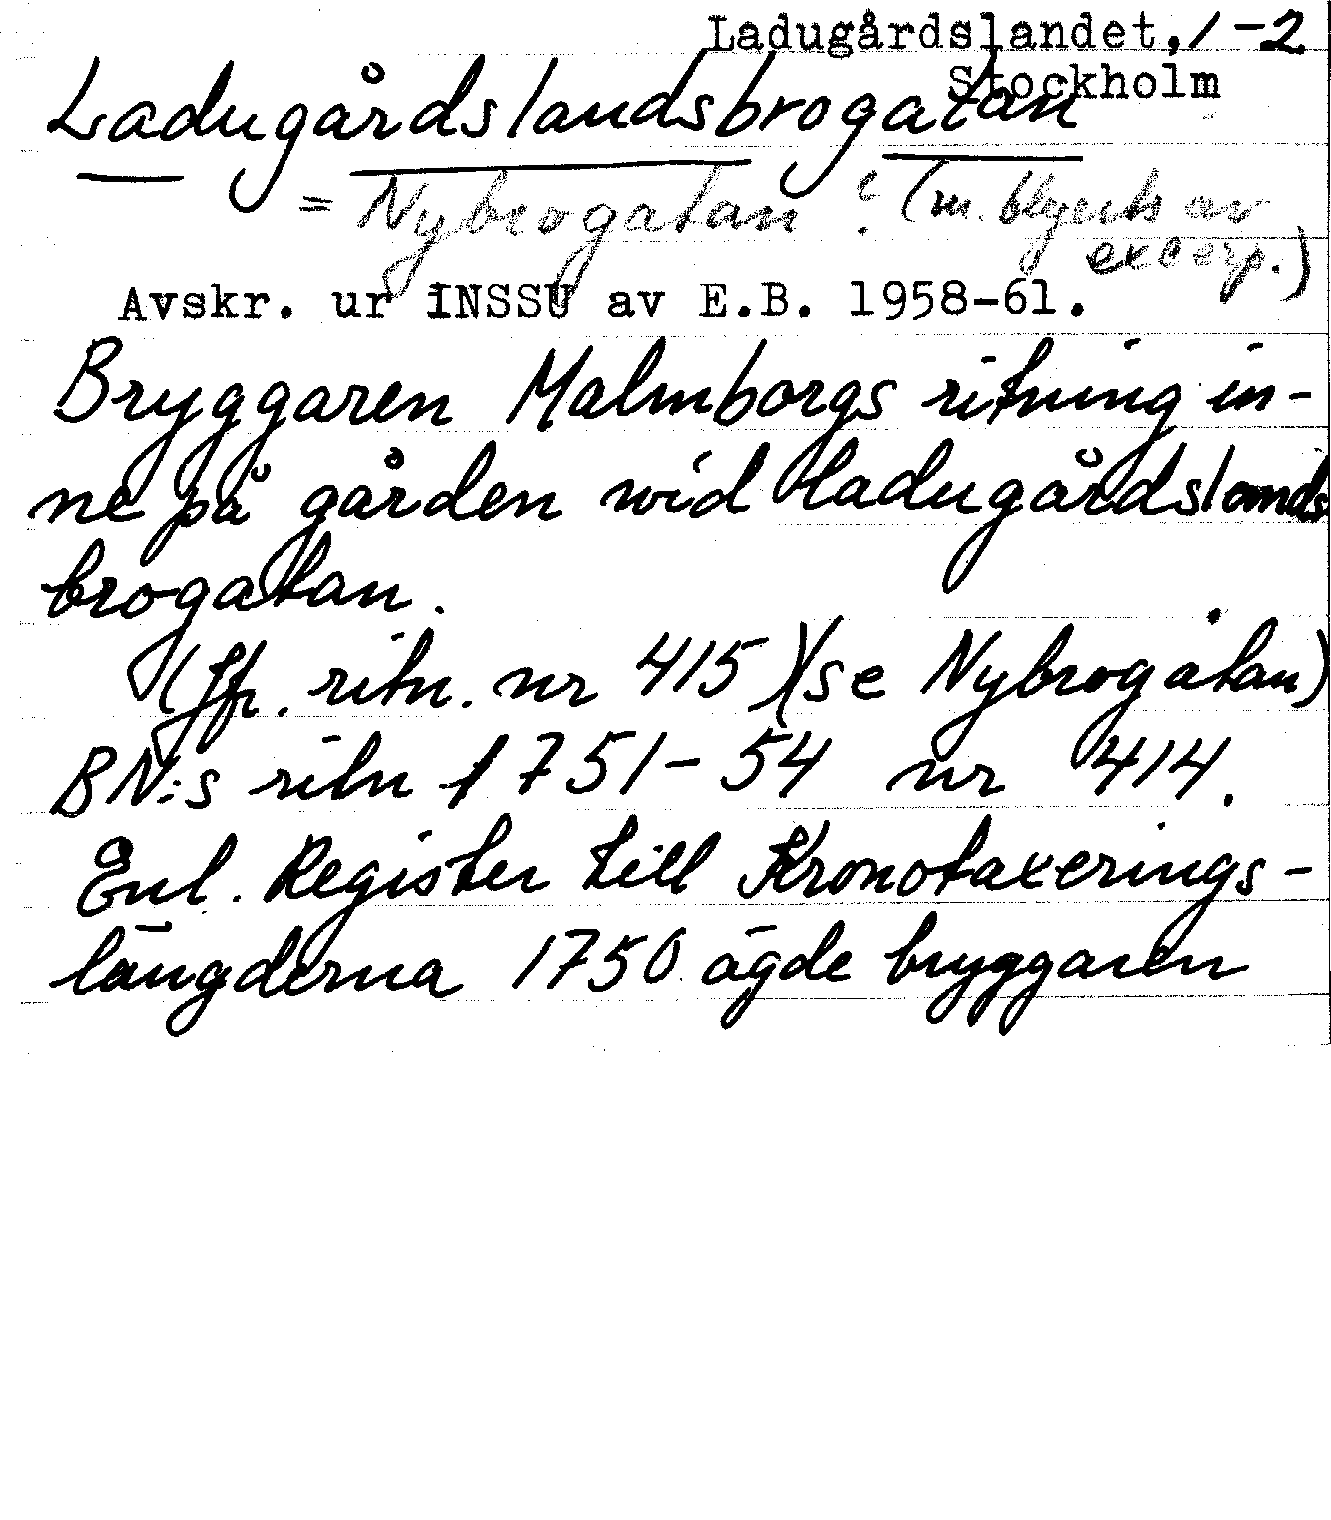 Ladugårdslandet, 1-2
Stockholm
Ladugårdslandsbrogatan
= Nybrogatan ? (m. blyerts av
excerp.)
Avskr. ur INSSU av E.B. 1958-61.
Bryggaren Malmborgs ritning in-
ne på gården wid Ladugårdslands
brogatan.
(Jfr. ritn. nr 415)(se Nybrogatan)
BN:s ritn 1751-54 nr 414.
Enl. Register till Kronotaxerings-
längderna 1750 ägde bryggaren